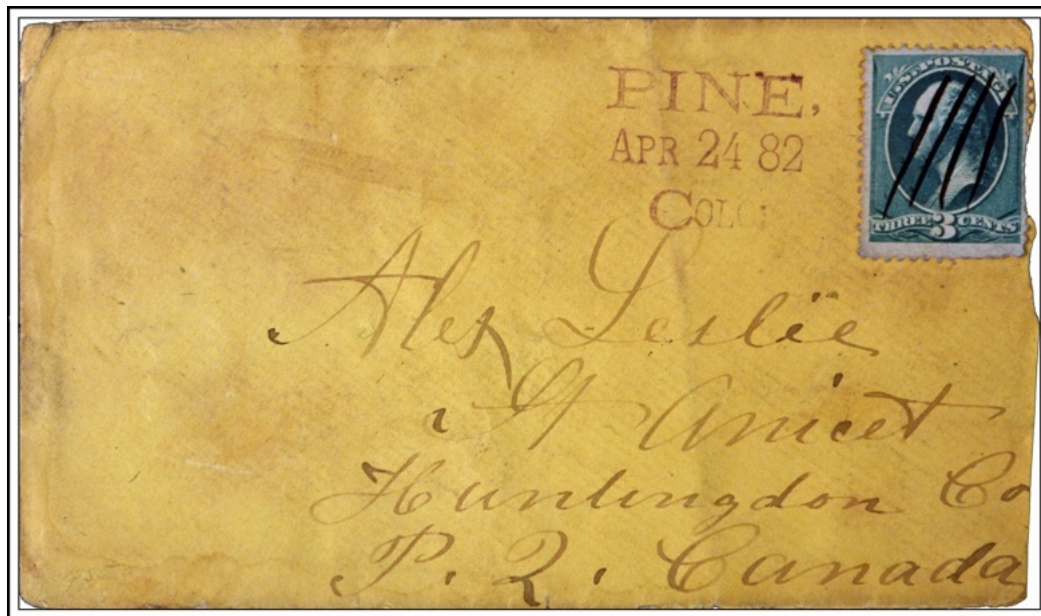 PINE,
APR 24 82
COLO
U.S. POSTAGE
THREE 3 CENTS
Alex Leslie
St Anicet
Huntingdon Co
P. Q. Canada